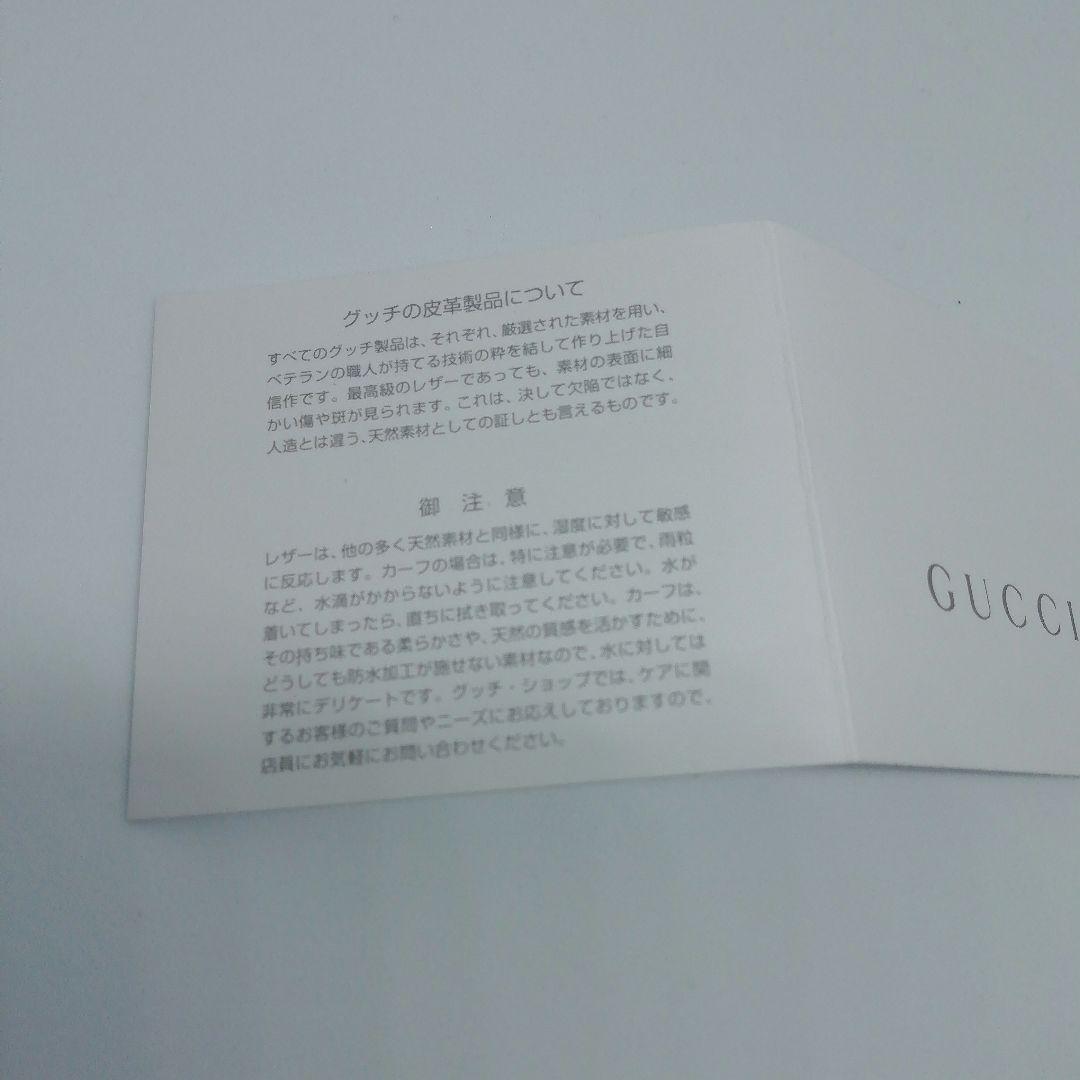 グッチの皮革製品について
すべてのグッチ製品は、それぞれ、厳選された素材を用い、
ベテランの職人が持てる技術の粋を結して作り上げた自
信作です。最高級のレザーであっても、素材の表面に細
かい傷や斑が見られます。これは、決して欠陥ではなく、
人造とは違う、天然素材としての証しとも言えるものです。
御注意
レザーは、他の多く天然素材と同様に、湿度に対して敏感
に反応します。カーフの場合は、特に注意が必要で、雨粒
など、水滴がかからないように注意してください。水が
着いてしまったら、直ちに拭き取ってください。カーフは、
その持ち味である柔らかさや、天然の質感を活かすために、
どうしても防水加工が施せない素材なので、水に対しては
非常にデリケートです。グッチ・ショップでは、ケアに関
するお客様のご質問やニーズにお応えしておりますので、
店員にお気軽にお問い合わせください。
GUCCI